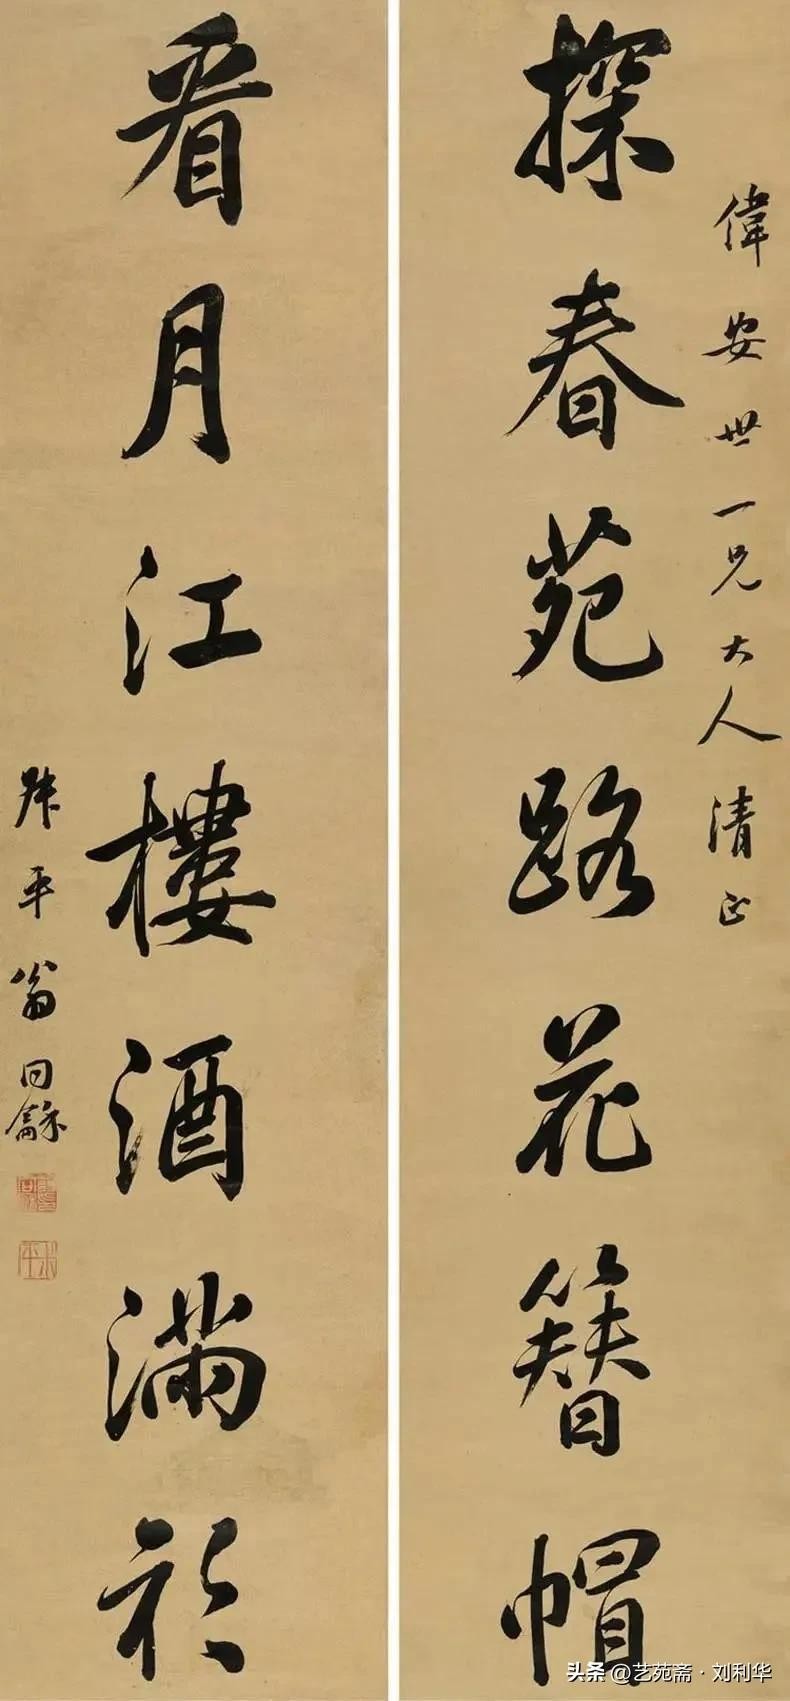 偉安世一兄大人清正
探春苑路花簪帽
看月江樓酒滿衫
叔平翁同龢
头条@艺苑斋·刘利华